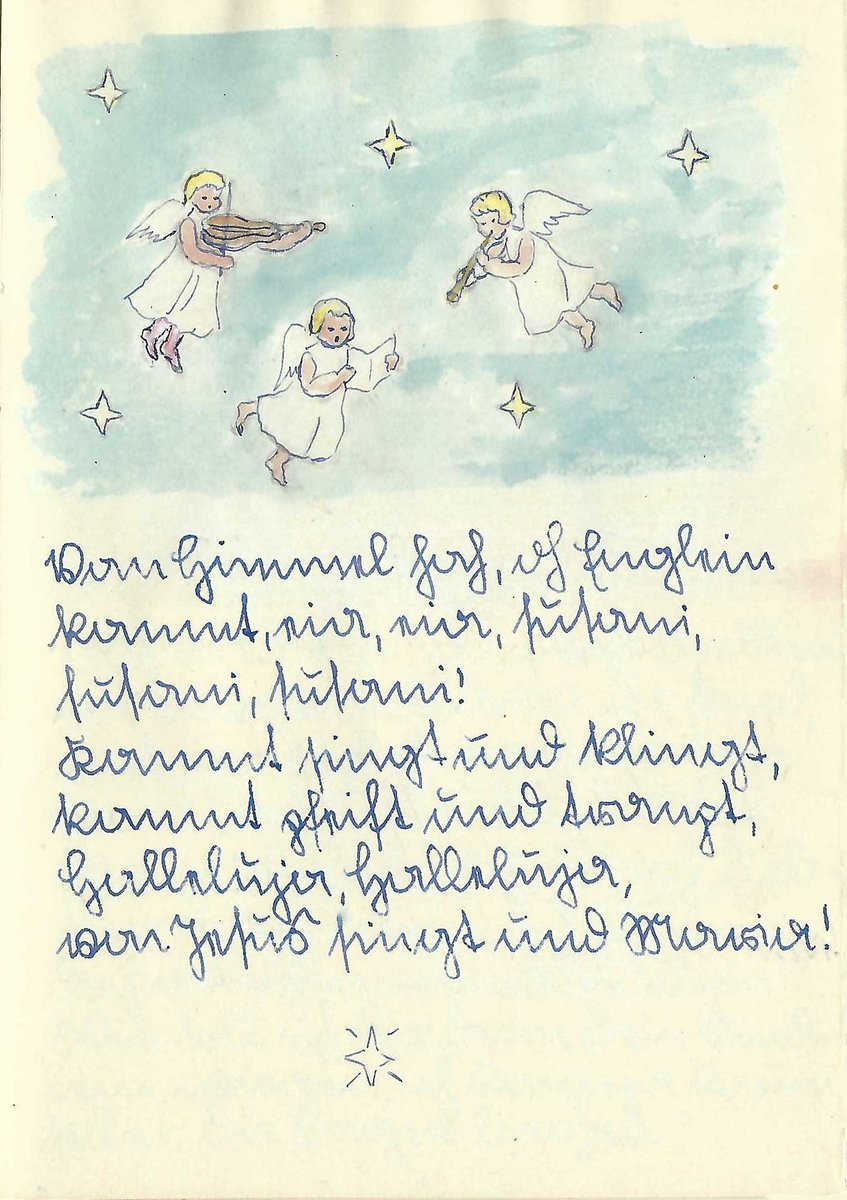 Vom Himmel hoch, oh Englein
kommt, eia, eia, susani,
susani, susani!
Kommt singt und klingt,
kommt pfeift und trompt,
Halleluja, Halleluja,
von Jesus singt und Maria!